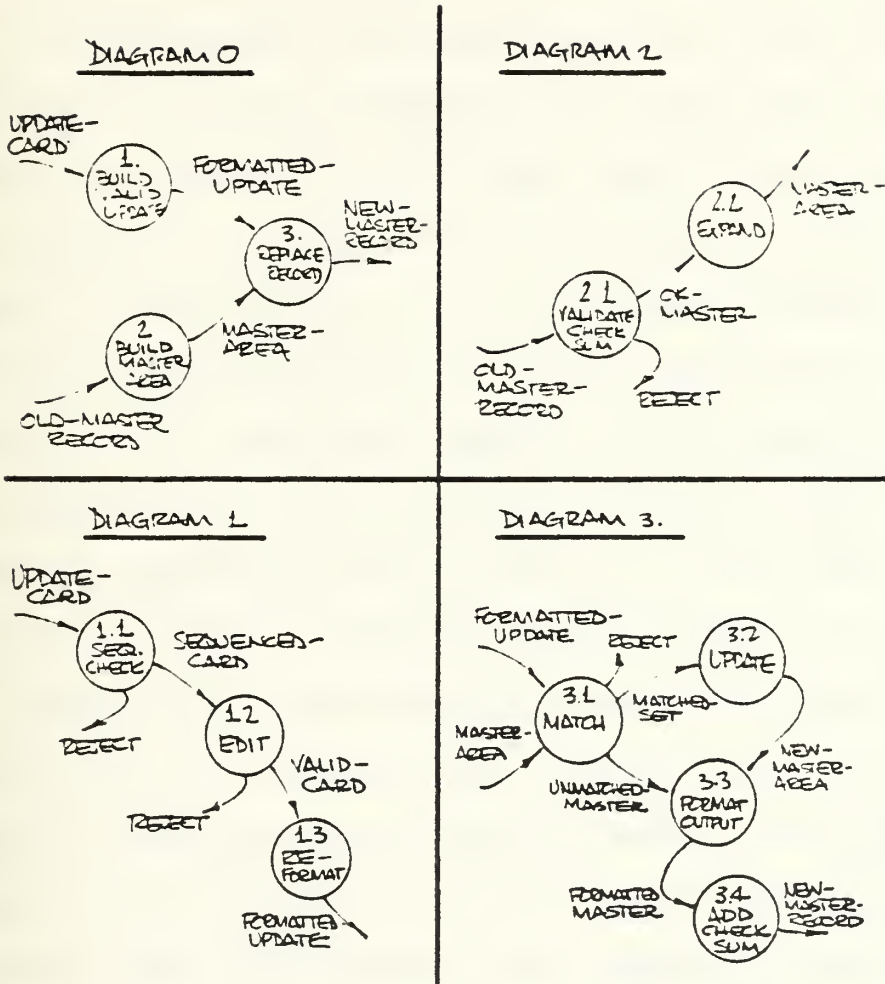 DIAGRAM 0
UPDATE-
CARD
1.
BUILD
VALID
UPDATE
FORMATTED-
UPDATE
NEW-
MASTER-
RECORD
3.
REPLACE
RECORD
2
BUILD
MASTER
AREA
MASTER-
AREA
OLD-MASTER
RECORD
DIAGRAM 2
MASTER-
AREA
2.2
EXPAND
2.1
VALIDATE
CHECK
SUM
OK-
MASTER
OLD-
MASTER-
RECORD
REJECT
DIAGRAM 1
UPDATE-
CARD
1.1
SEQ.
CHECK
SEQUENCED-
CARD
REJECT
1.2
EDIT
VALID-
CARD
REJECT
1.3
RE-
FORMAT
FORMATTED
UPDATE
DIAGRAM 3.
FORMATTED-
UPDATE
REJECT
3.2
UPDATE
3.1
MATCH
MATCHED-
SET
MASTER-
AREA
UNMATCHED-
MASTER
3.3
FORMAT
OUTPUT
NEW-
MASTER-
AREA
FORMATTED
MASTER
3.4
ADD
CHECK
SUM
NEW-
MASTER-
RECORD